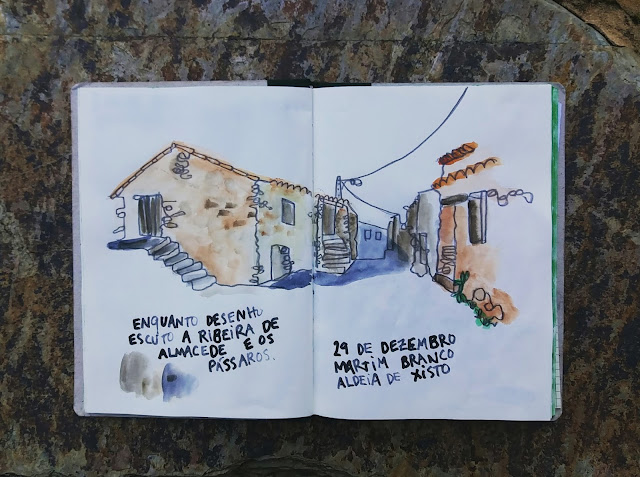 ENQUANTO DESENHO
ESCUTO A RIBEIRA DE
ALMACEDE E OS
PÁSSAROS.
29 DE DEZEMBRO
MARTIM BRANCO
ALDEIA DE XISTO